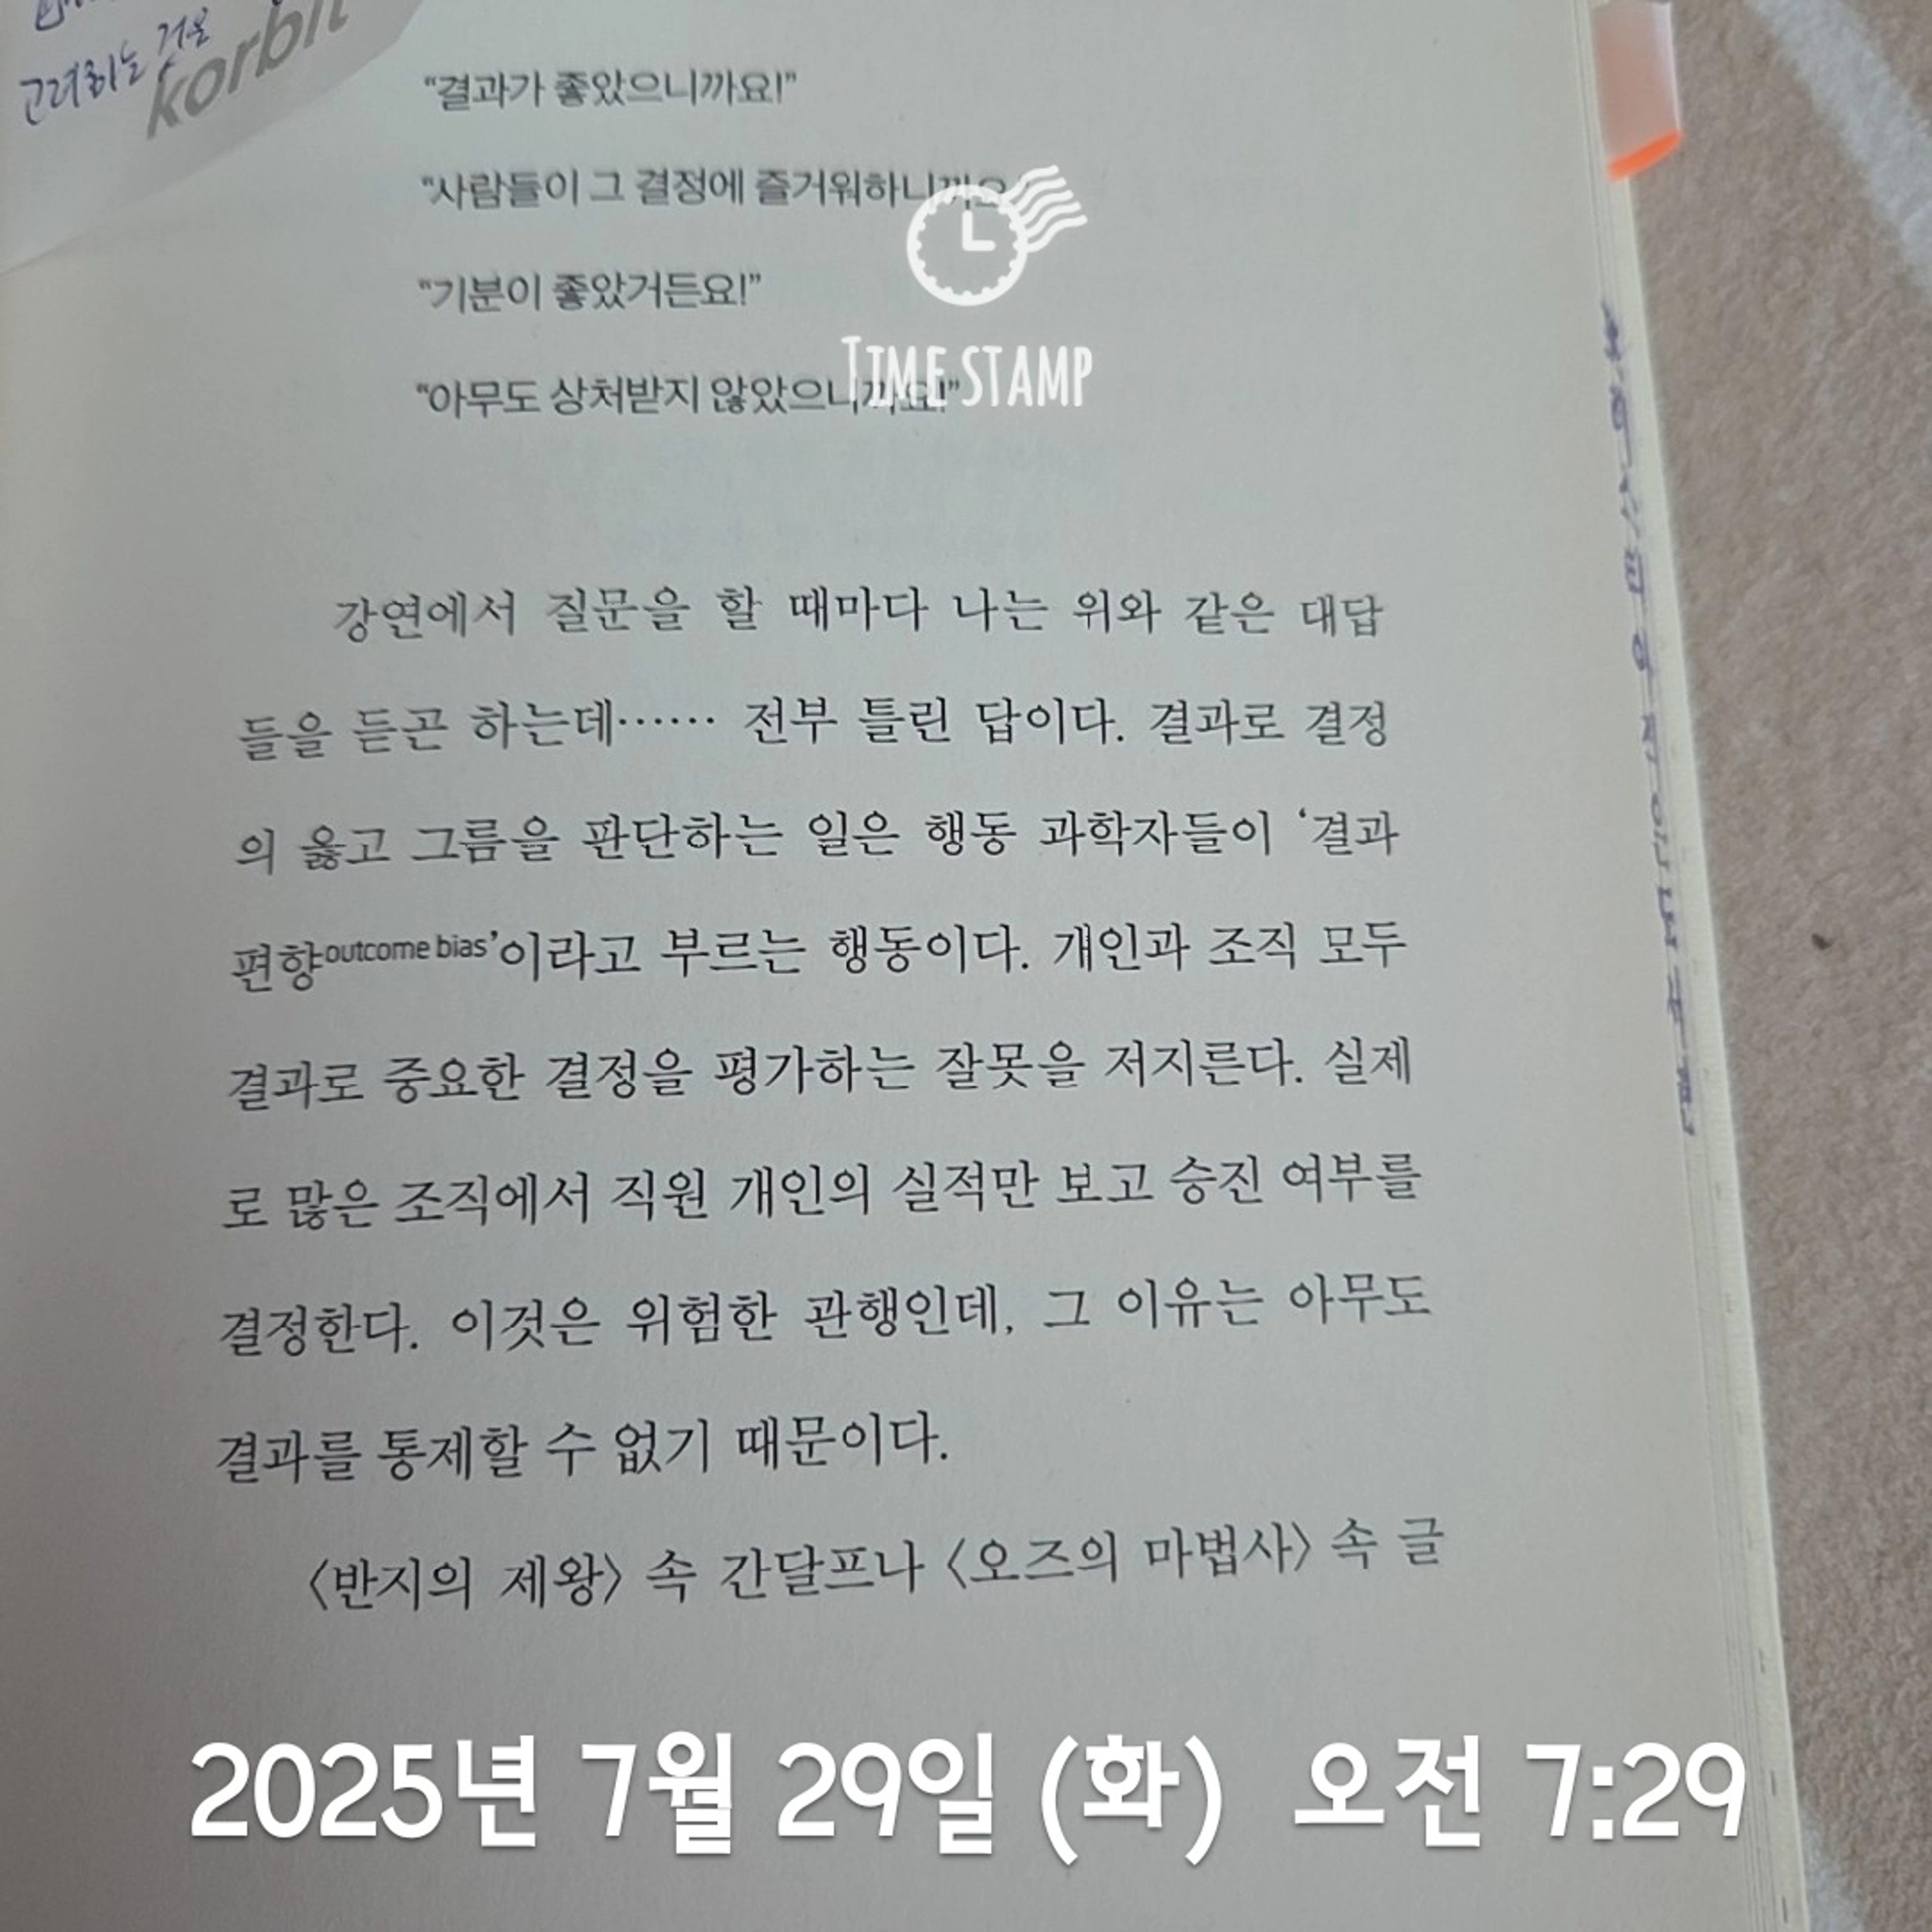 고려하는 것은
korbit
“결과가 좋았으니까요!”
“사람들이 그 결정에 즐거워하니까요
“기분이 좋았거든요!”
TIME STAMP
“아무도 상처받지 않았으니까요!”
강연에서 질문을 할 때마다 나는 위와 같은 대답
들을 듣곤 하는데…… 전부 틀린 답이다. 결과로 결정
의 옳고 그름을 판단하는 일은 행동 과학자들이 ‘결과
편향outcome bias’이라고 부르는 행동이다. 개인과 조직 모두
결과로 중요한 결정을 평가하는 잘못을 저지른다. 실제
로 많은 조직에서 직원 개인의 실적만 보고 승진 여부를
결정한다. 이것은 위험한 관행인데, 그 이유는 아무도
결과를 통제할 수 없기 때문이다.
〈반지의 제왕〉 속 간달프나 〈오즈의 마법사〉 속 글
2025년 7월 29일 (화) 오전 7:29